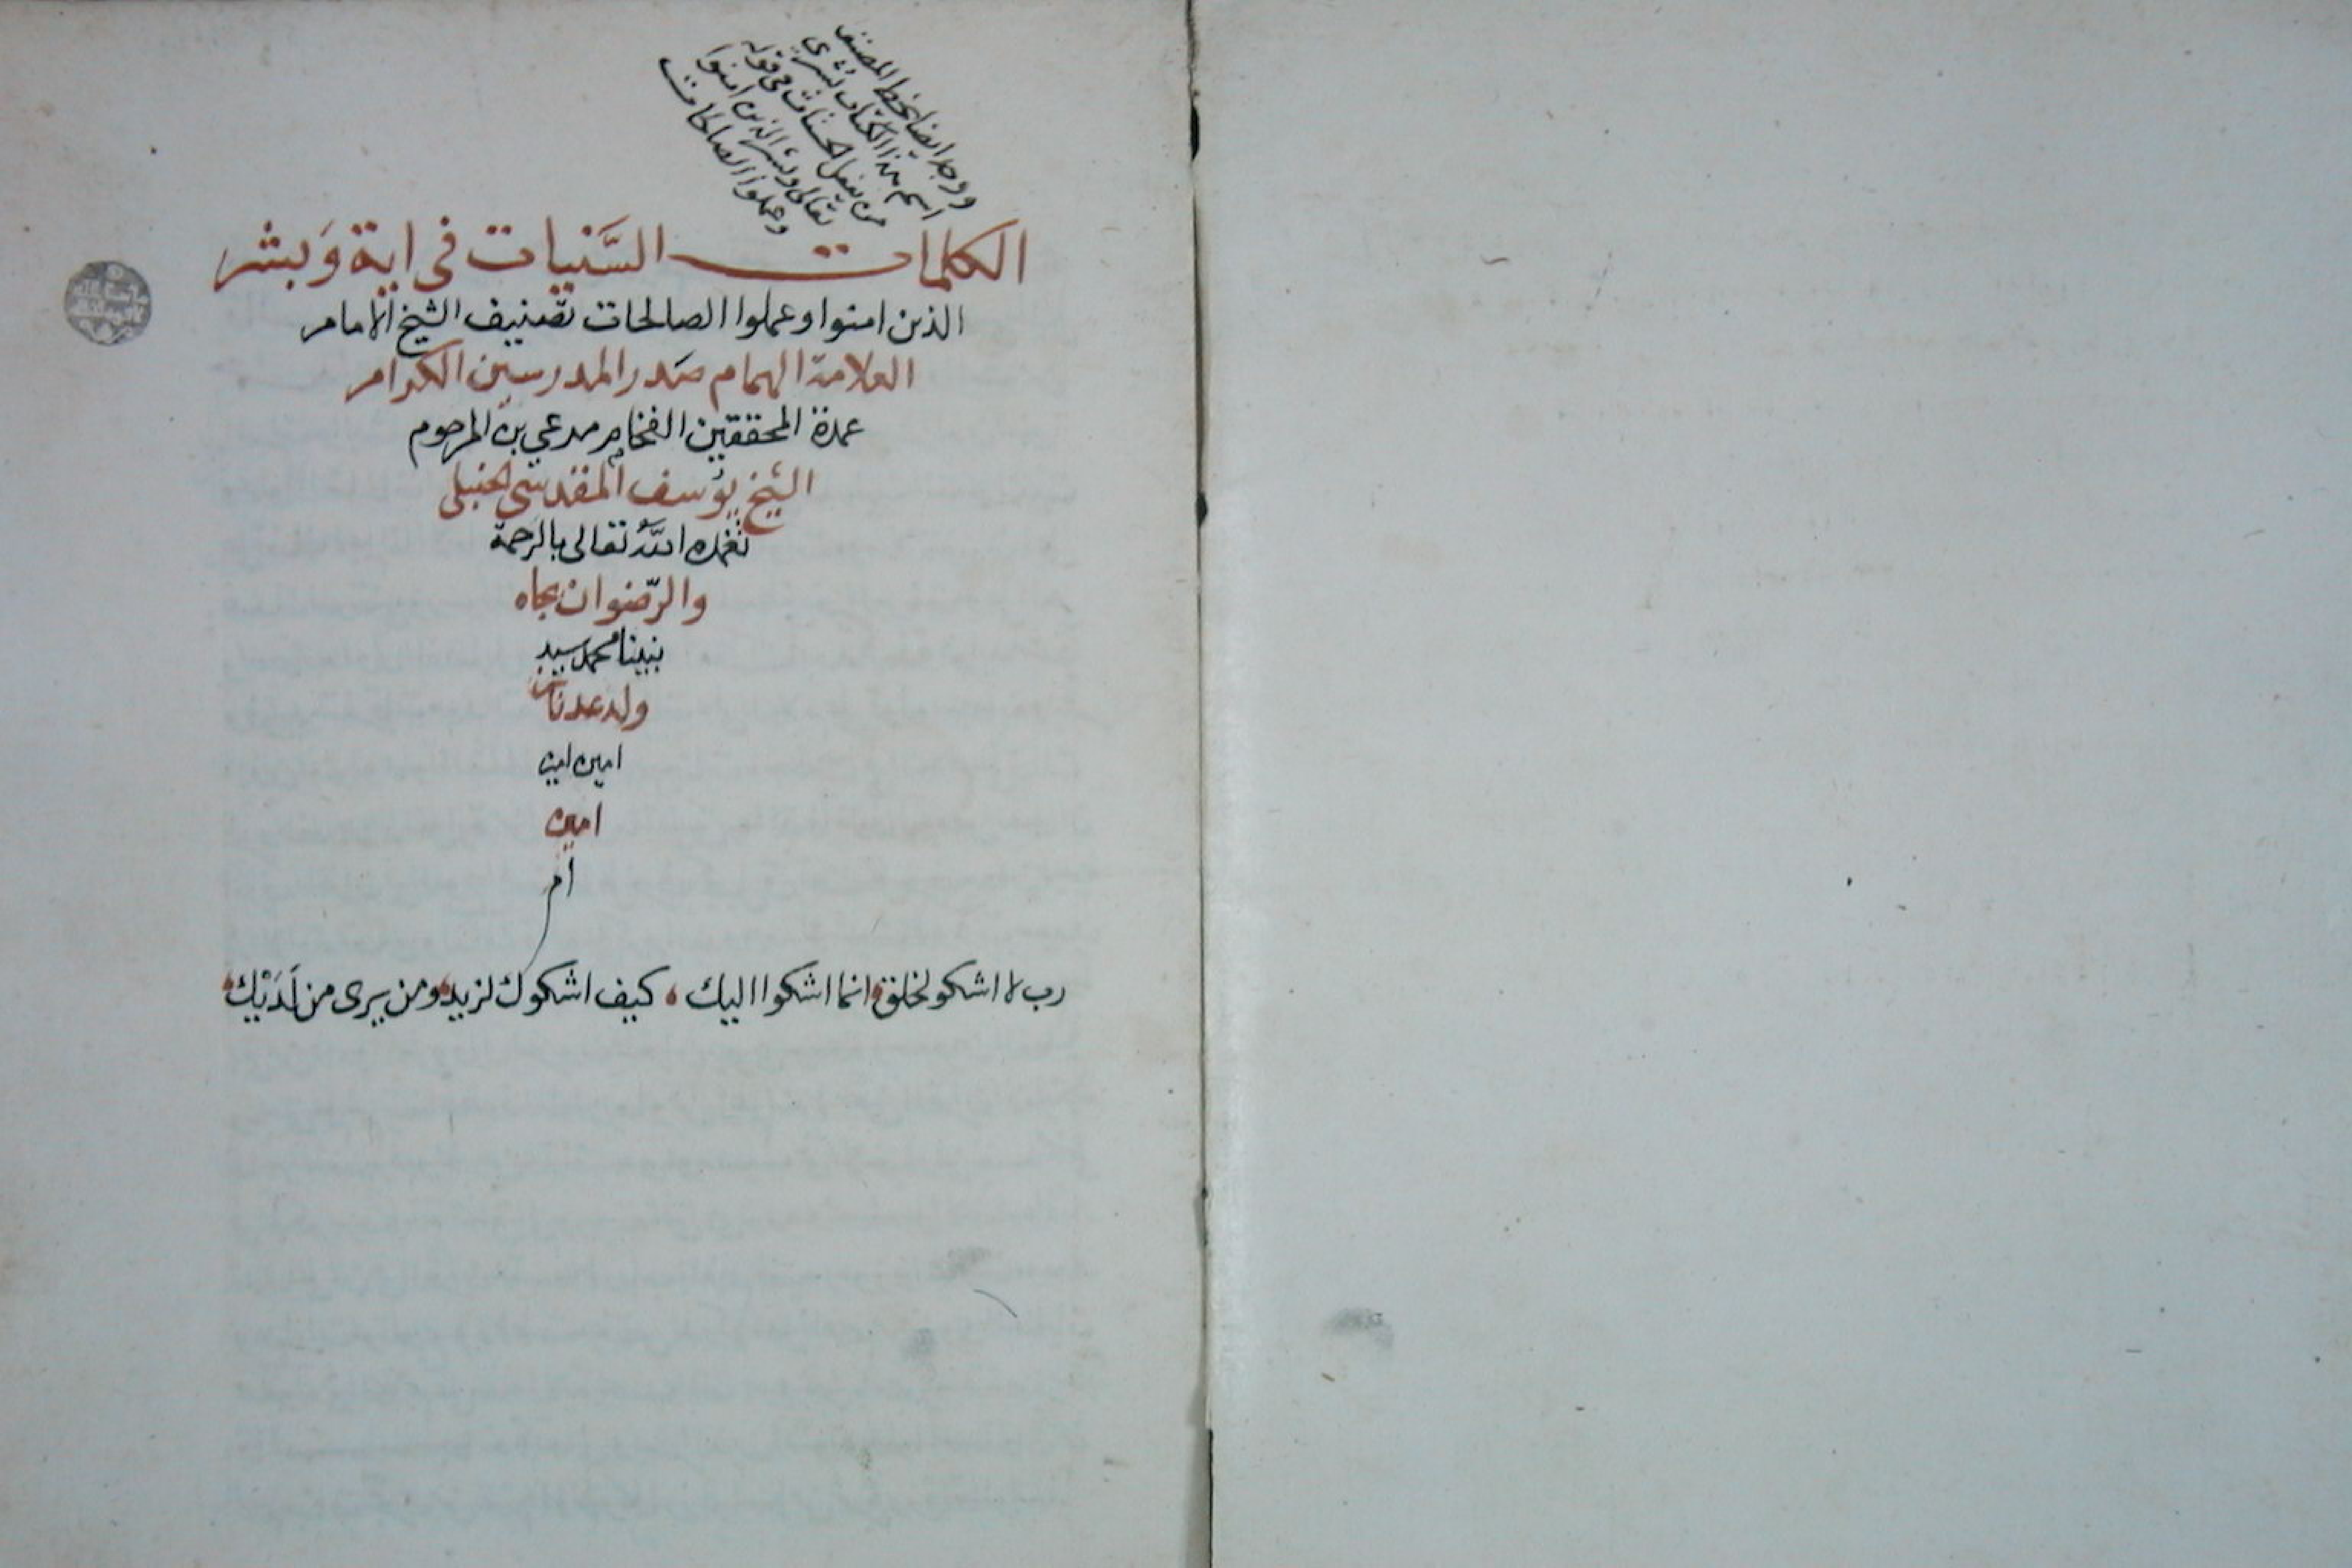 ووجد ايضا بخط المصنف
اسم هذا الكتاب بشرى
من يفعل الحسنات في قوله
تعالى وبشر الذين امنوا
وعملوا الصالحات
الكلمات السَّنيات فى اية وَبشر
الذين امنوا وعملوا الصالحات تصنيف الشيخ الامام
العلامة الهمام صَدر المدرسين الكرام
عمدة المحققين الفخام مرعي بن المرحوم
الشيخ يوُسف المقدسي الحنبلى
تغمده اللّٰه تعالى بالرحمة
والرّضوان بجاه
نبينا محمد سيد
ولد عدنان
امين امين
امين
ام
رب لا اشكو لخلق انما اشكوا اليك كيف اشكوك لزيد ومن يرى من لَدَيْك